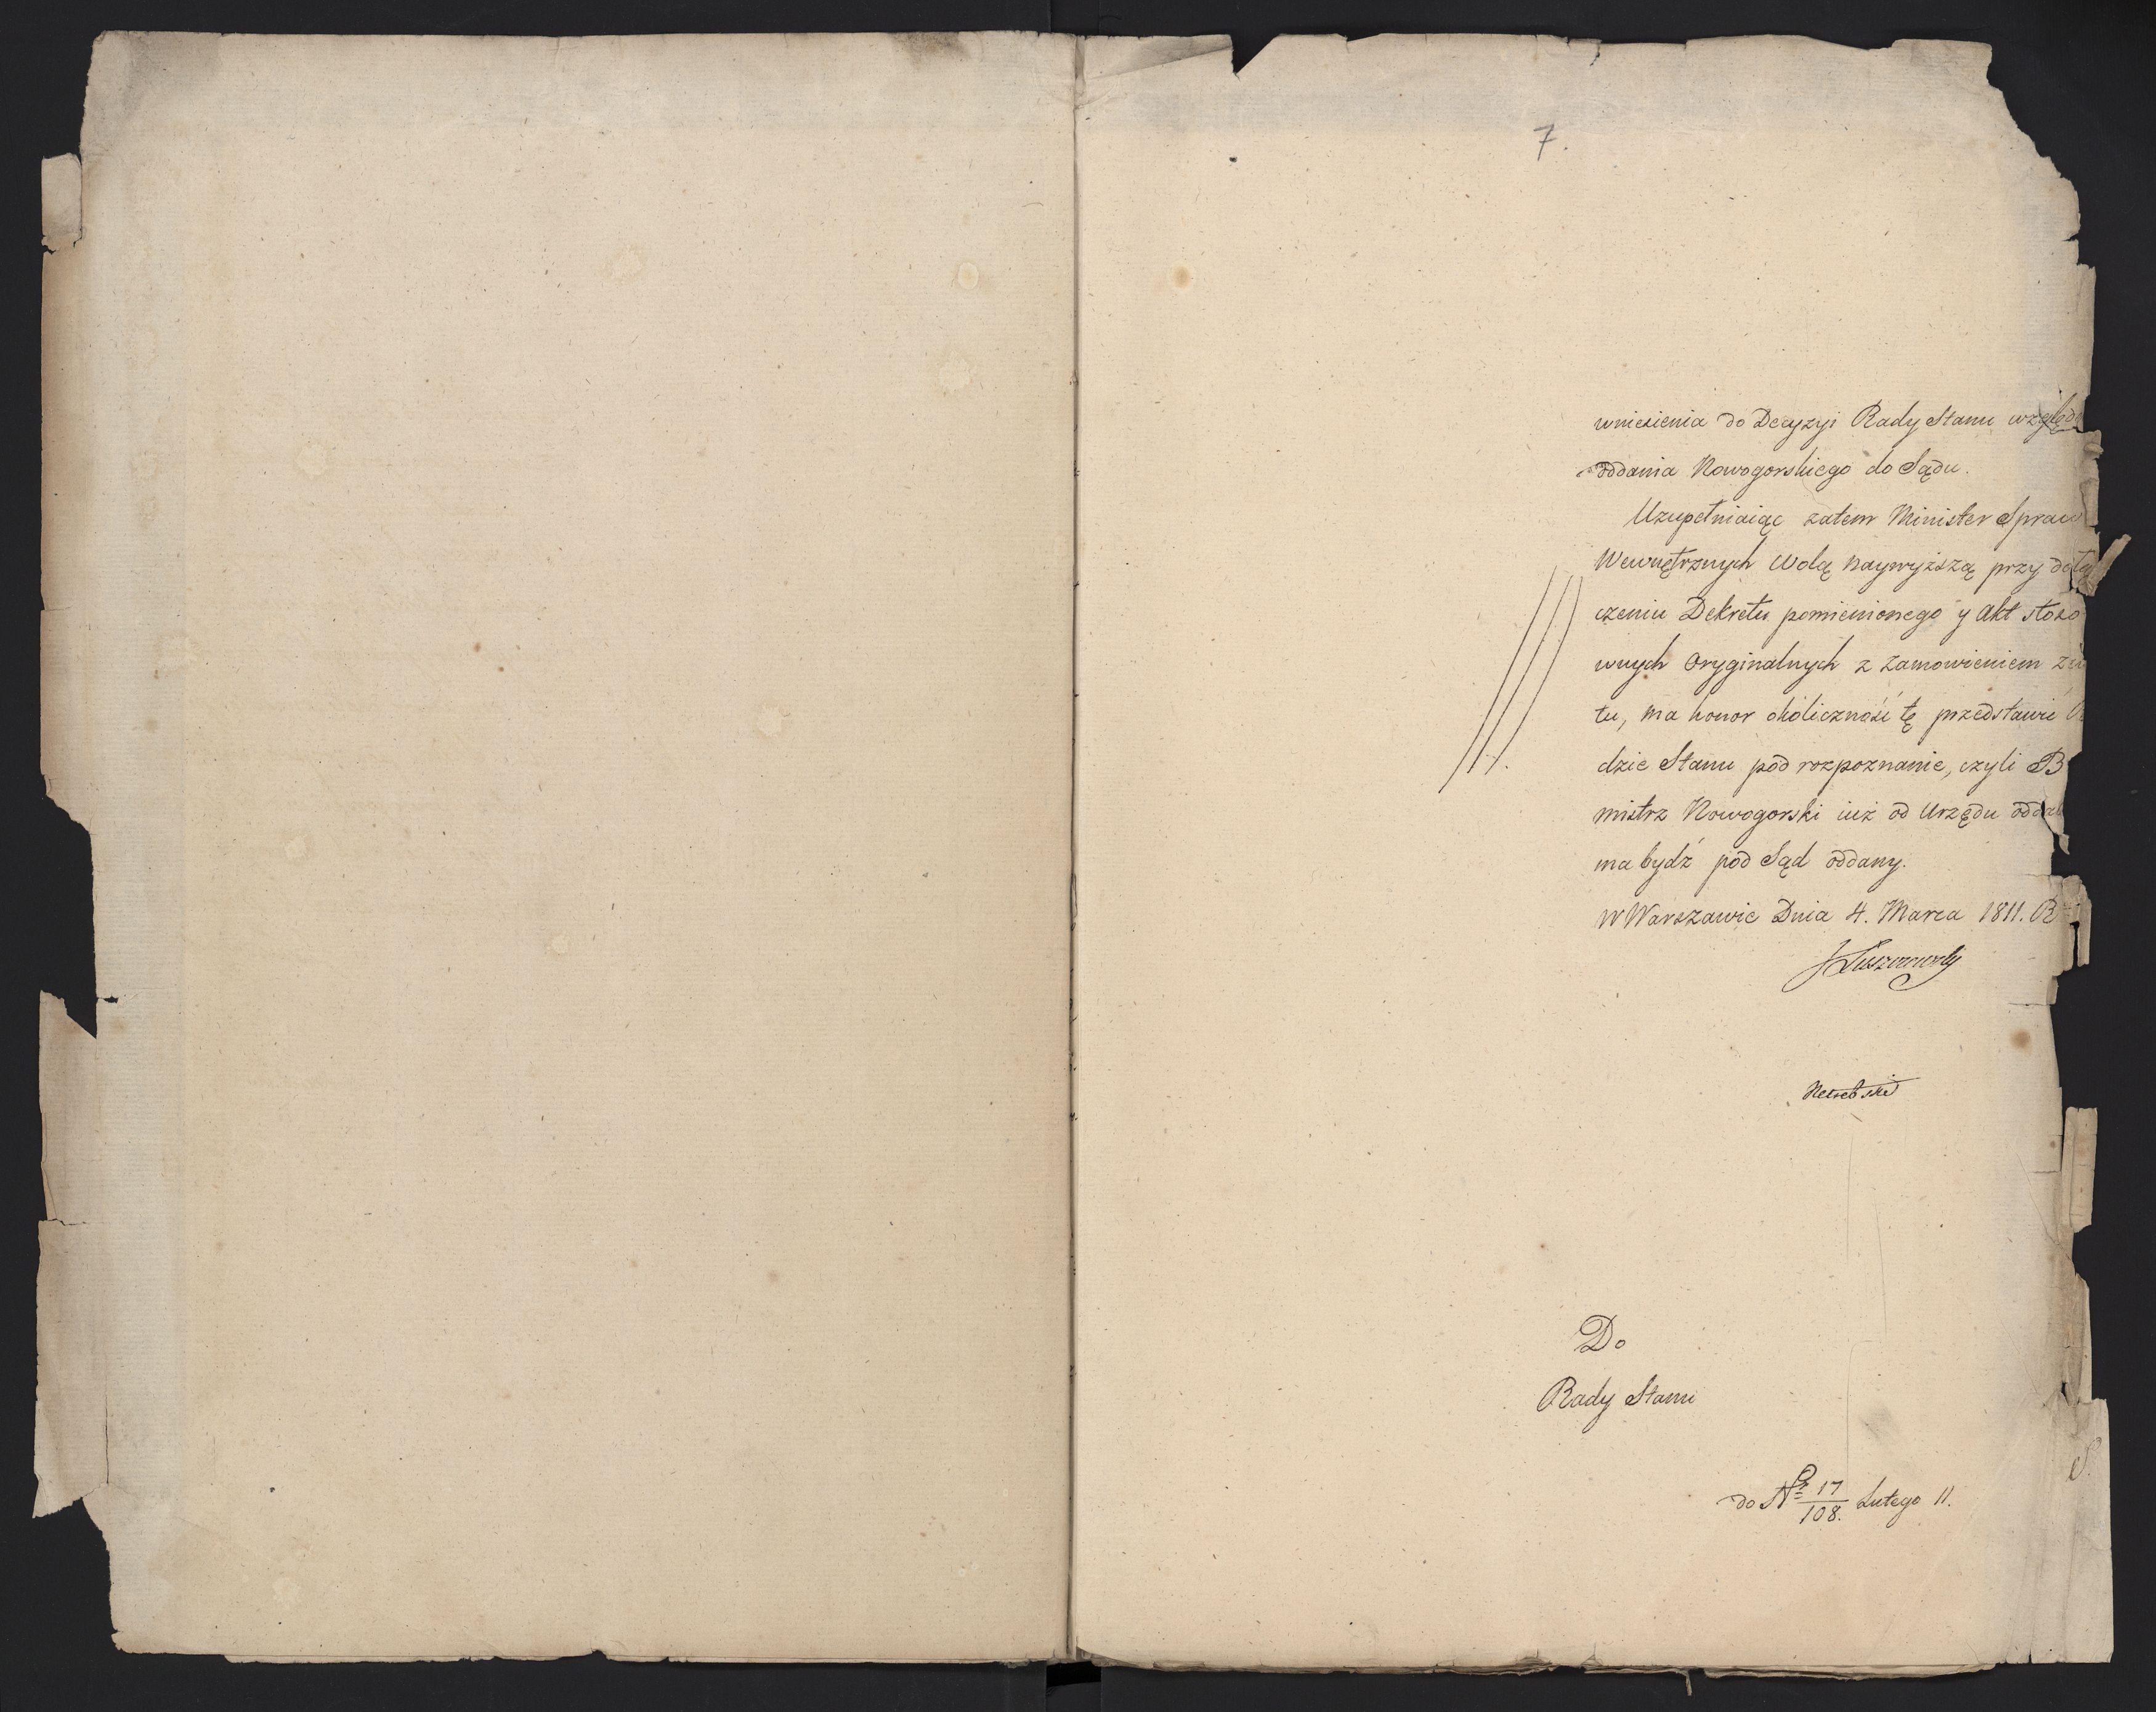 7.
wniesienia do Decyzyi Rady Stanu względ
oddania Nowogorskiego do Sądu.
Uzupełniaiąc zatem Minister Spraw
Wewnętrznych Wolą naywyższą przy dołą
czeniu Dekretu pomienionego y Akt stoso
wnych Oryginalnych z zamowieniem zw
tu, ma honor okoliczność tę przedstawić
dzie Stanu pod rozpoznanie, czyli B
mistrz Nowogorski iuż od Urzędu oddal
ma bydź pod Sąd oddany.
W Warszawie Dnia 4. Marca 1811. R
Do
Rady Stanu
do N 17/108. Lutego 11.